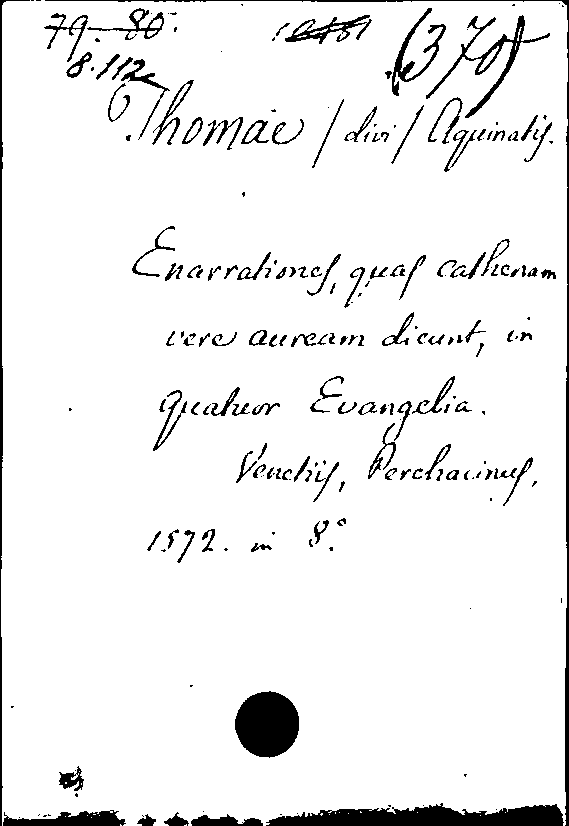 79. 80.
8.112
(370)
Thomae /divi/ Aquinatis.
Enarrationes, quas cathenam
vere auream dicunt, in
quatuor Evangelia.
Venetiis, Perchacinus,
1572. in 8.°